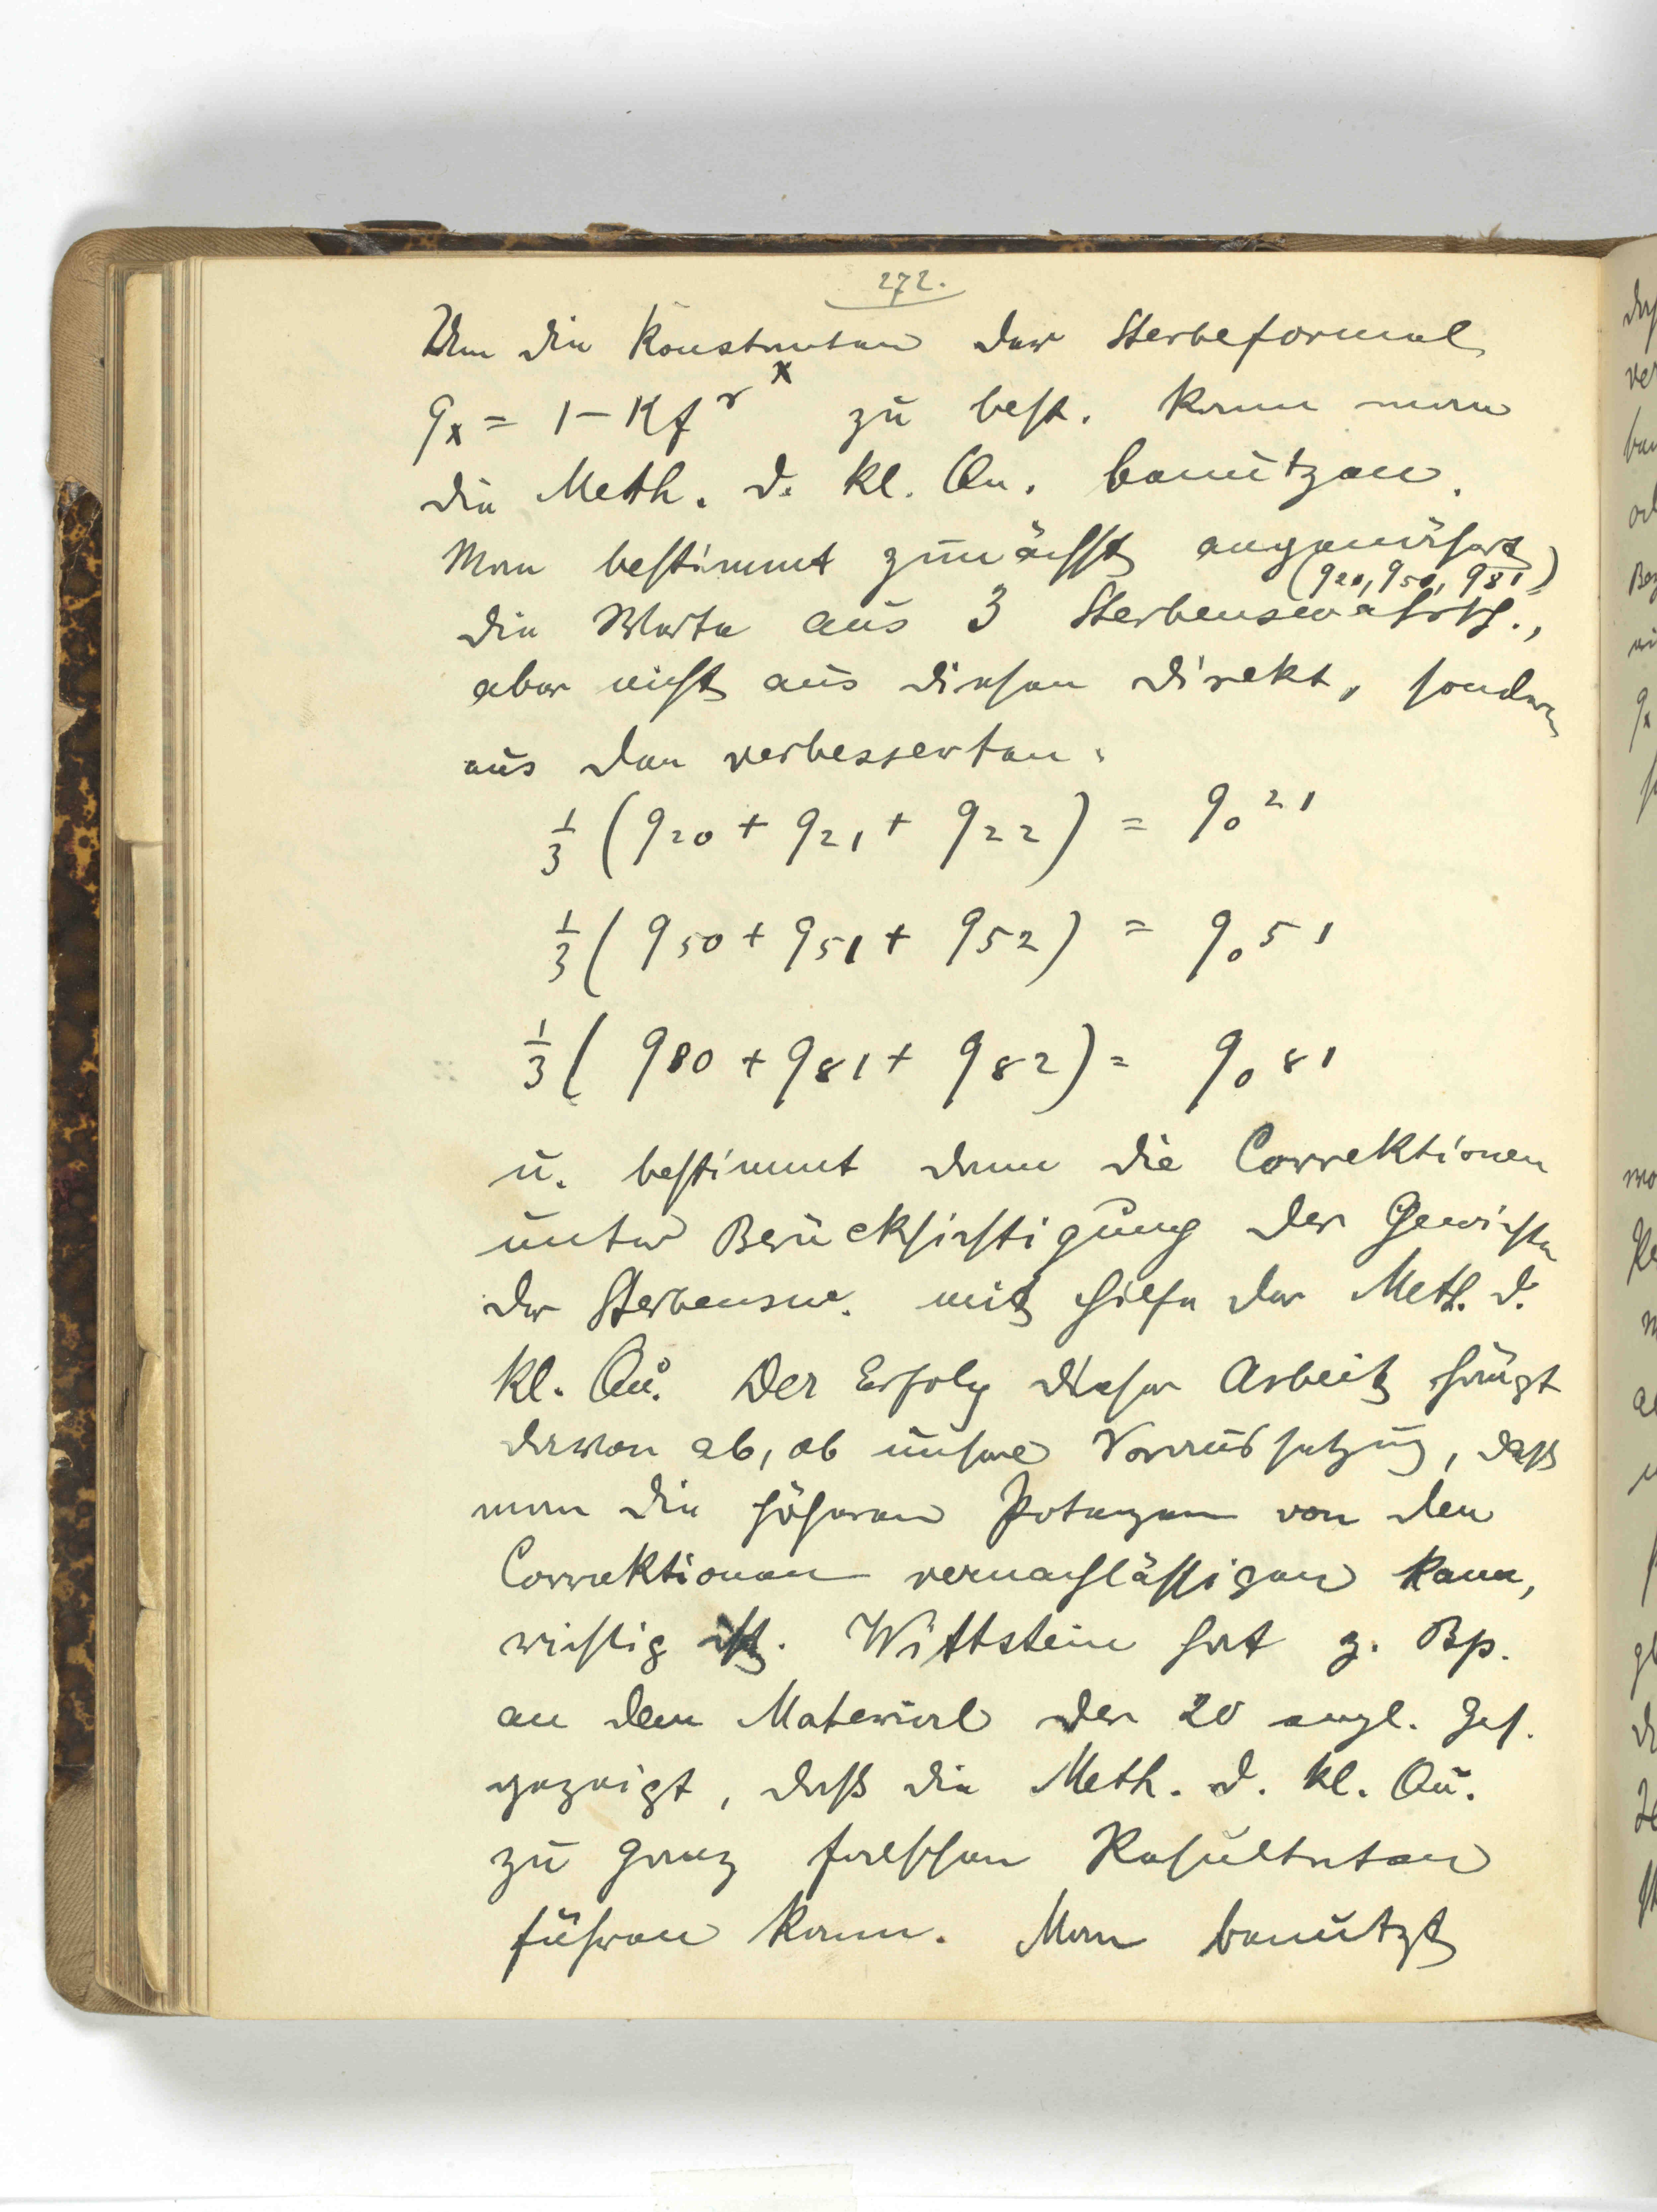 272.
Um die Konstanten der Sterbeformel
qx = 1 - Kf^r^x zu best. kann man
die Meth. d. kl. Qu. benützen.
Man bestimmt zunächst angenähert
(q20, q50, q81)
die Werte aus 3 Sterbenswahrsch.,
aber nicht aus diesen direkt, sondern
aus den verbesserten:
1/3 (q20 + q21 + q22) = q0 21
1/3 (q50 + q51 + q52) = q0 51
1/3 (q80 + q81 + q82) = q0 81
u. bestimmt dann die Correktionen
unter Berücksichtigung der Gewichte
der Sterbensw. mit Hilfe der Meth. d.
kl. Qu. Der Erfolg dieser Arbeit hängt
davon ab, ob unsere Voraussetzung, daß
man die höheren Potenzen von den
Correktionen vernachlässigen kann,
richtig ist. Wittstein hat z. Bp.
an dem Material der 20 engl. Ges.
gezeigt, daß die Meth. d. kl. Qu.
zu ganz falschen Resultaten
führen kann. Man benützt